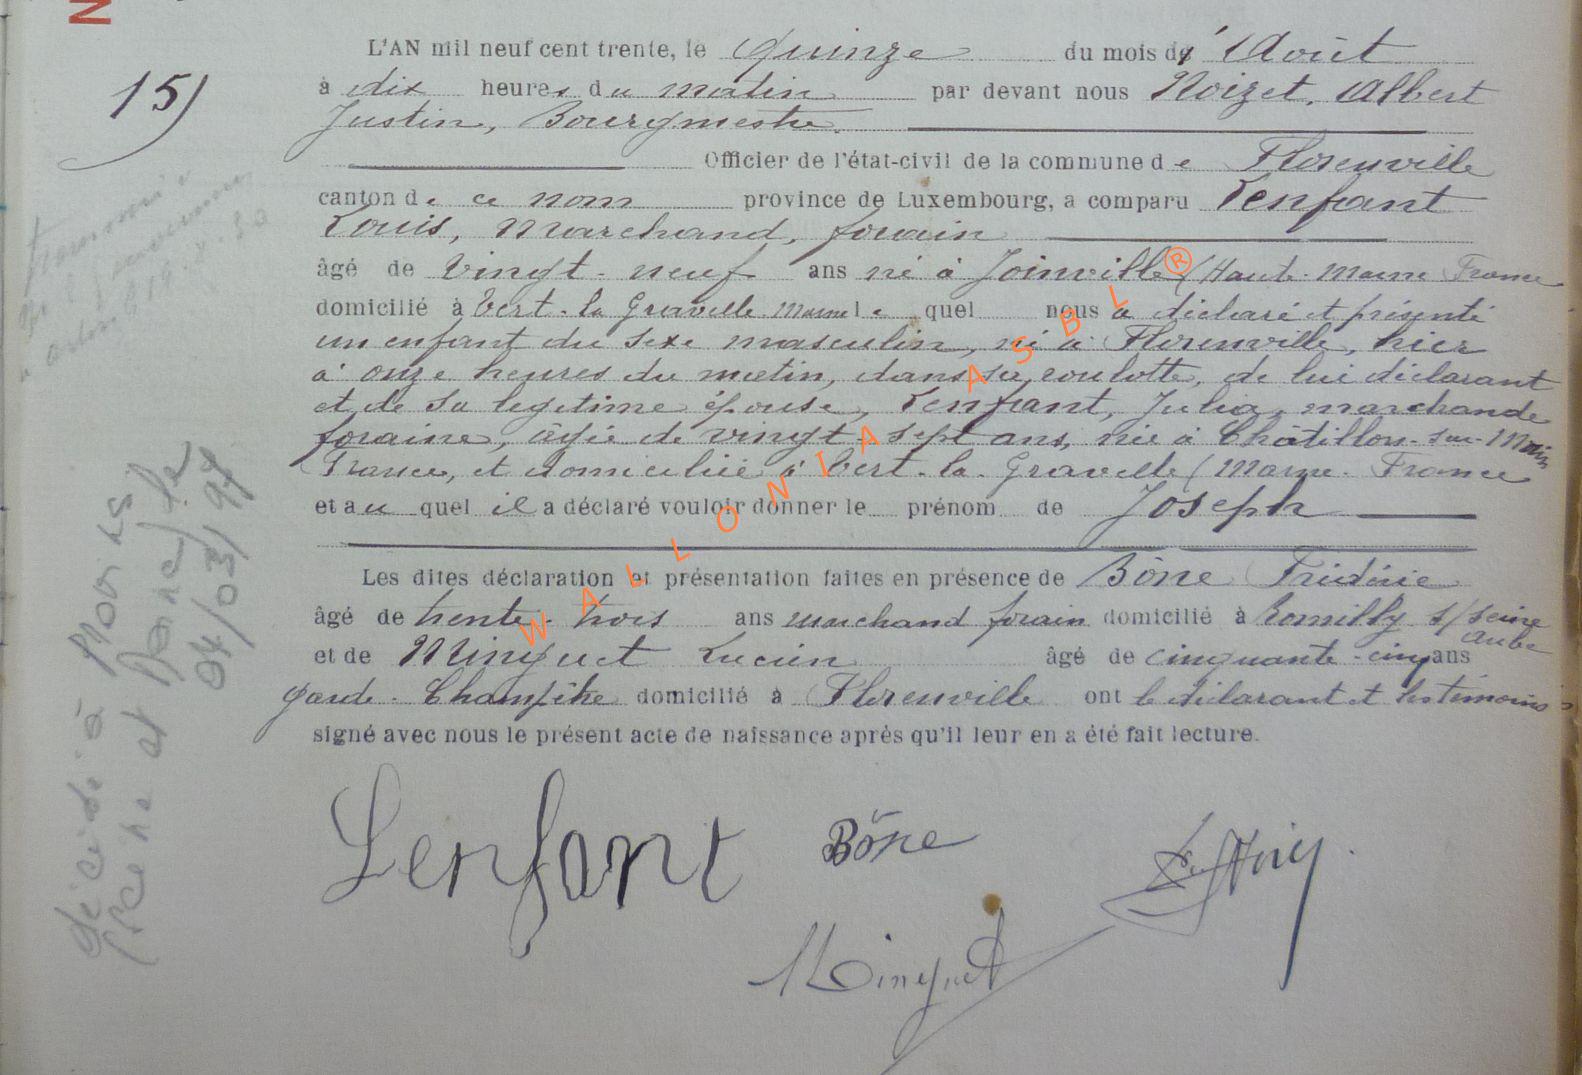 N
15)
L'AN mil neuf cent trente, le quinze du mois d' Août
à dix heures du matin par devant nous Noizet, Albert
Justin, Bourgmestre.
Officier de l'état-civil de la commune de Florenville
canton de ce nom province de Luxembourg, a comparu Lenfant
Louis, Marchand, forain
âgé de vingt-neuf ans né à Joinville (Haute-Marne France
domicilié à Vert-la Gravelle Marne le quel nous a déclaré et présenté
un enfant du sexe masculin, né à Florenville, hier
à onze heures du matin, dans sa roulotte, de lui déclarant
et de sa légitime épouse, Lenfant, Julia, marchande
foraine, âgée de vingt-sept ans, née à Châtillon-sur-Morin
France, et domiciliée à Vert-la-Gravelle (Marne-France
et au quel il a déclaré vouloir donner le prénom de Joseph
Les dites déclaration et présentation faites en présence de Bône Frédéric
âgé de trente-trois ans marchand forain domicilié à Romilly s/Seine
Aube
et de Minguet Lucien âgé de cinquante-cinq ans
garde-Champêtre domicilié à Florenville ont le déclarant et les témoins
signé avec nous le présent acte de naissance après qu'il leur en a été fait lecture.
Lenfant Bône
Minguet
décédé à Moiks
04/03/97
WALLONIA ASBL®